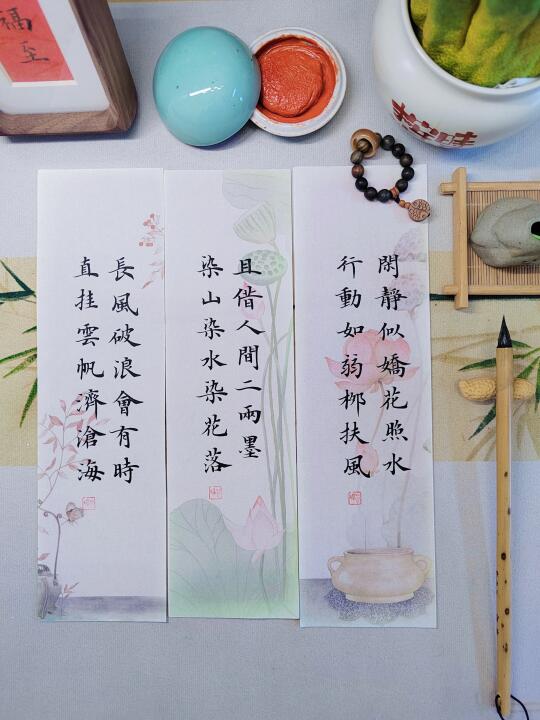 福至
閑靜似嬌花照水
行動如弱柳扶風
且借人間二兩墨
染山染水染花落
長風破浪會有時
直挂雲帆濟滄海